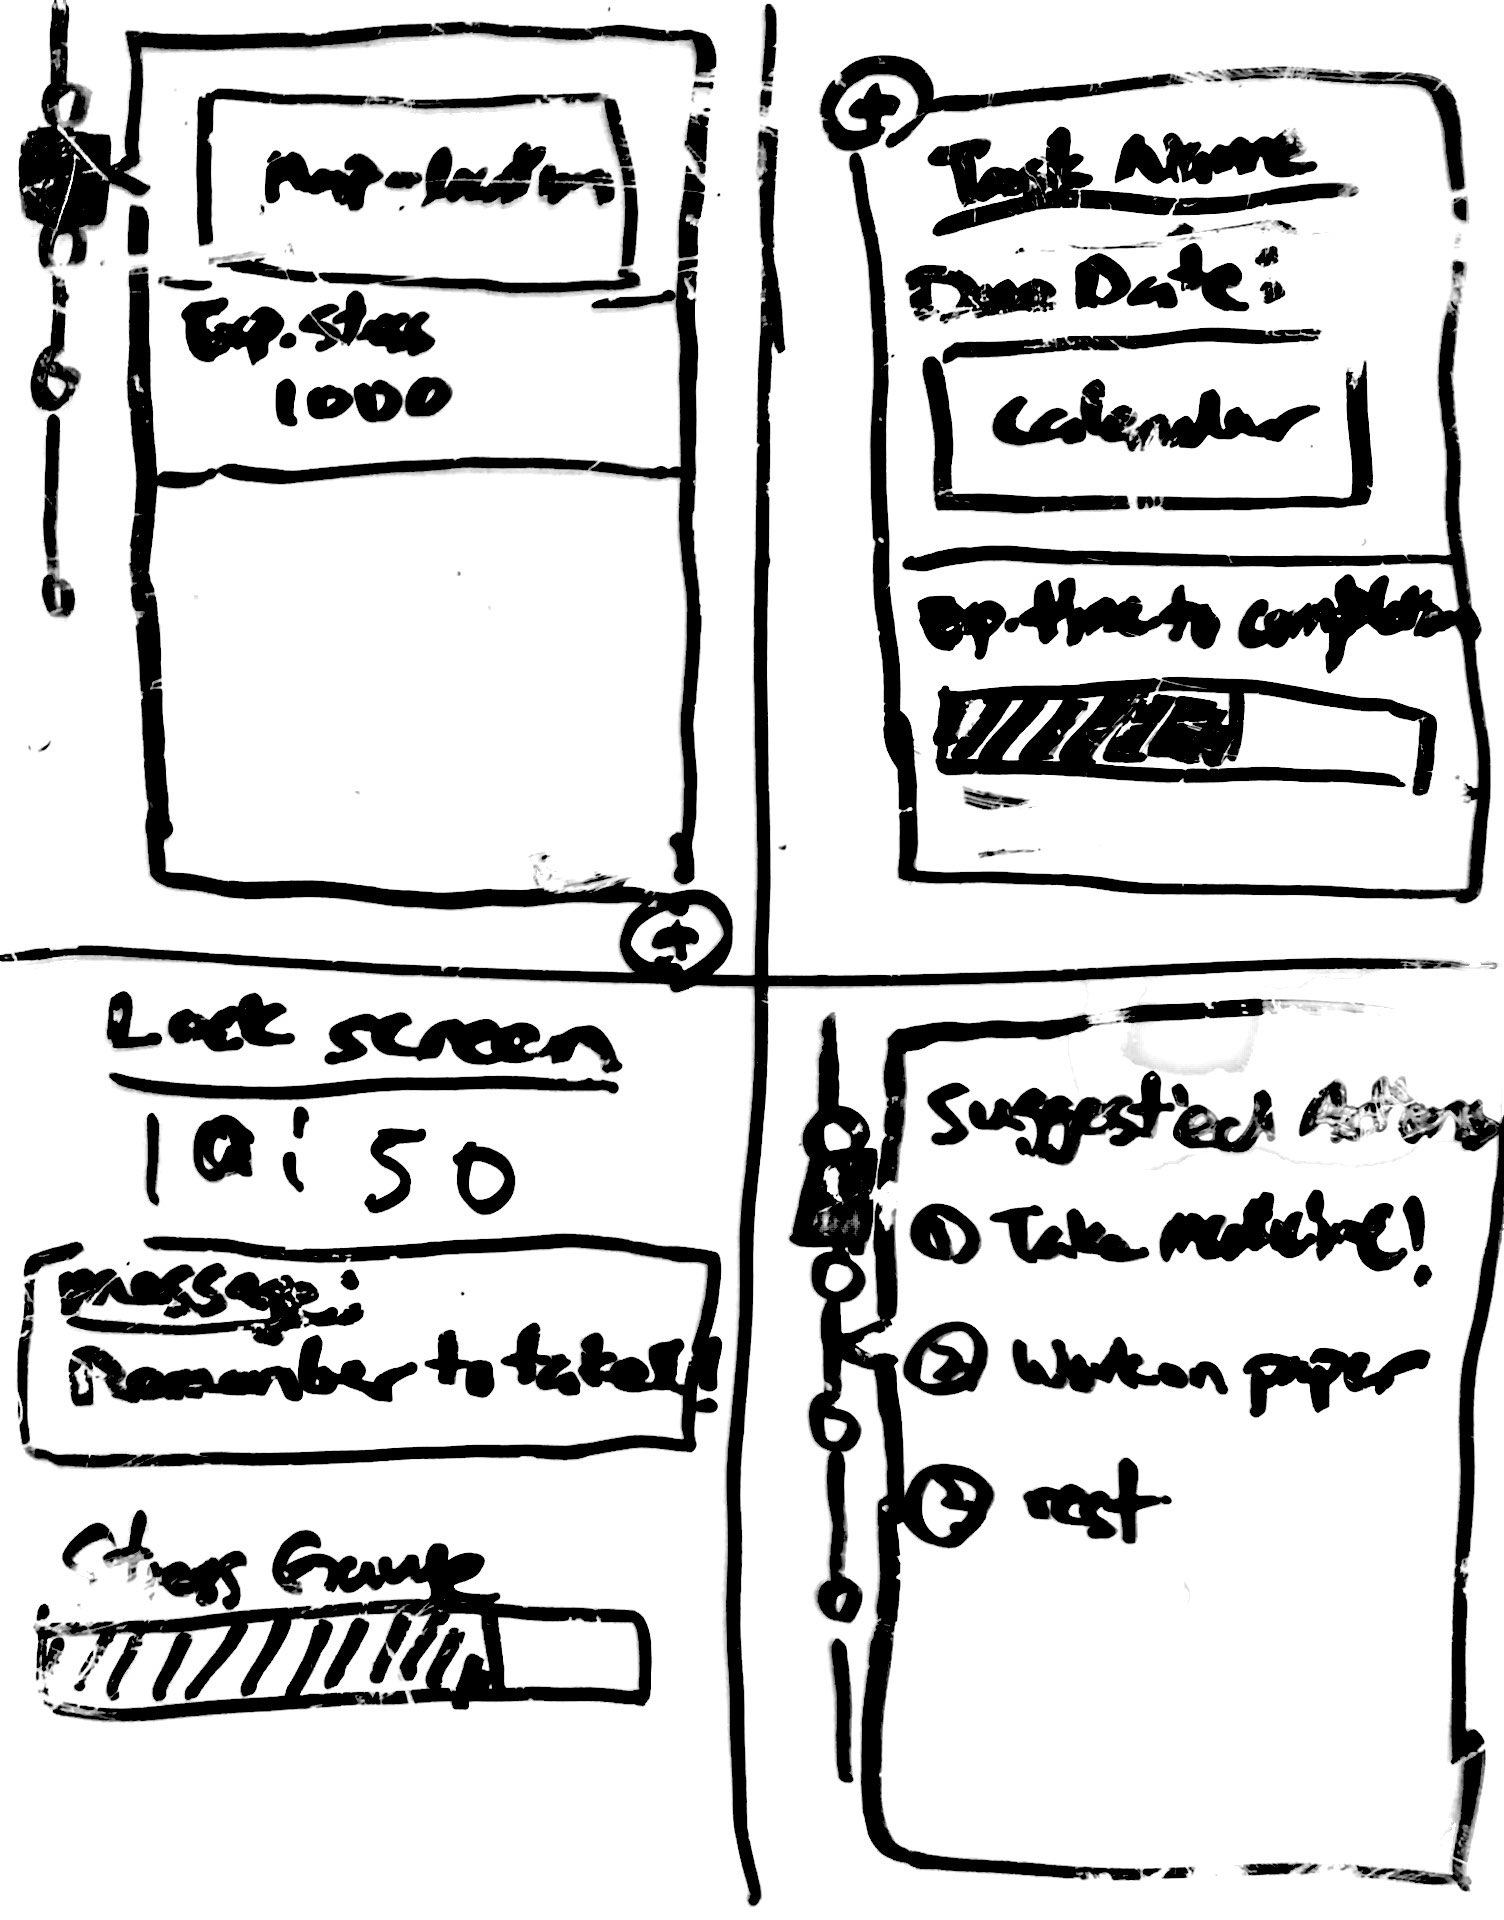 Map-location
Exp. stress
1000
+
+
Task Name
Due Date:
Calendar
Exp. time to completion
Lock screen
10:50
message:
Remember to take!!
Stress Gauge
Suggested Actions
① Take medicine!
② Work on paper
② rest